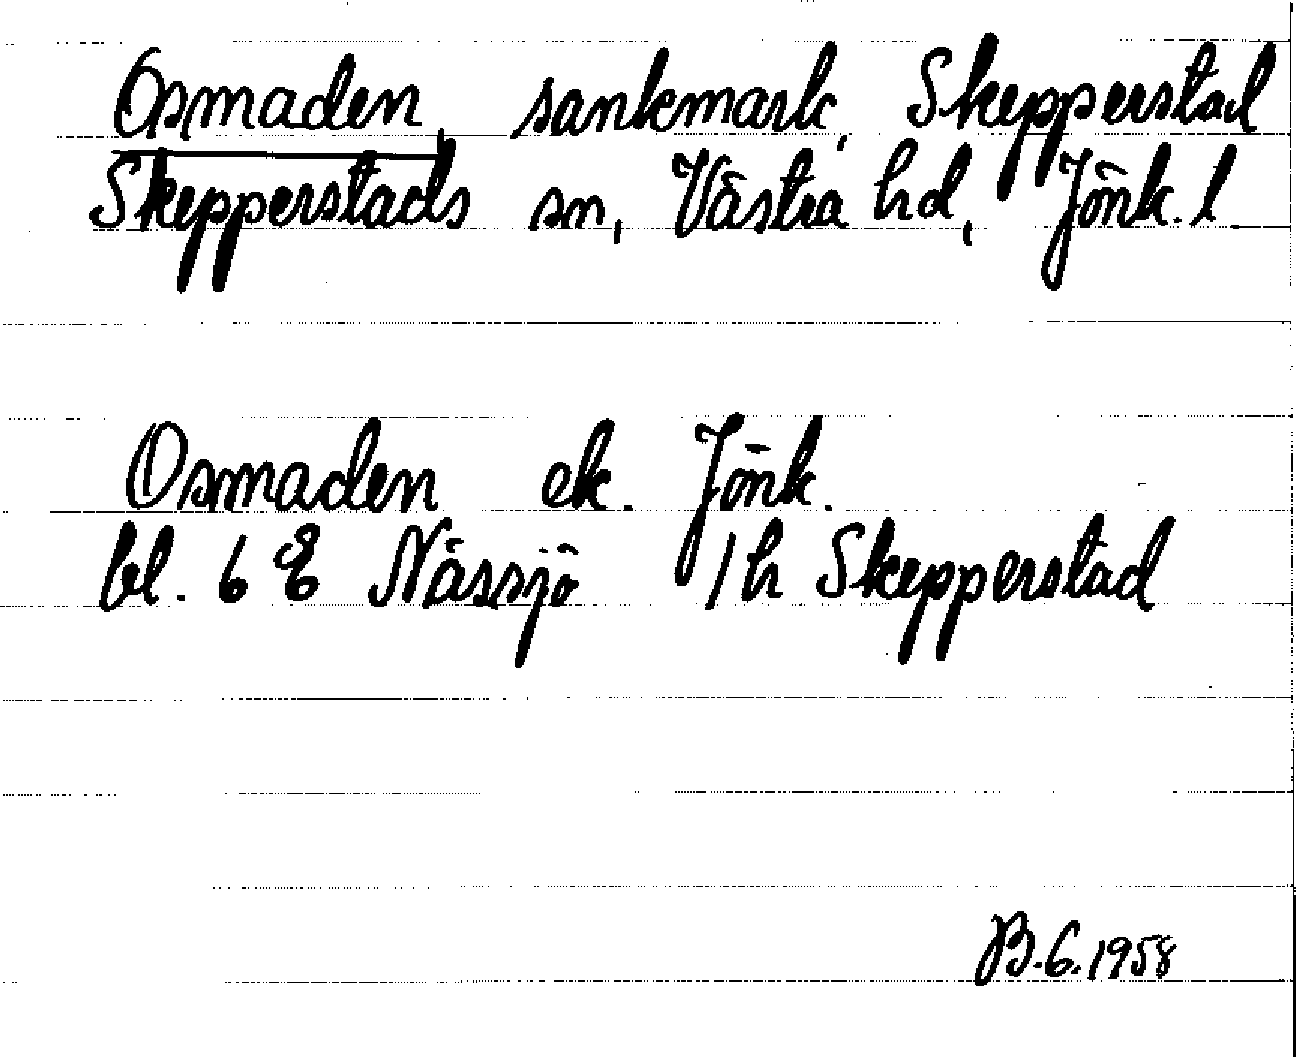 Osmaden, sankmark, Skepperstad
Skepperstads sn, Västra hd, Jönk. l
Osmaden ek. Jönk.
bl. 6 E Nässjö 1h Skepperstad
B.6.1958